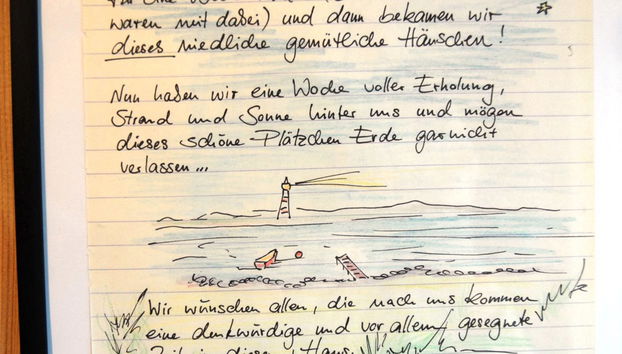 waren mit dabei) und dann bekamen wir
dieses niedliche gemütliche Häuschen!
Nun haben wir eine Woche voller Erholung,
Strand und Sonne hinter uns und mögen
dieses schöne Plätzchen Erde garnicht
verlassen...
Wir wünschen allen, die nach uns kommen
eine denkwürdige und vor allem gesegnete